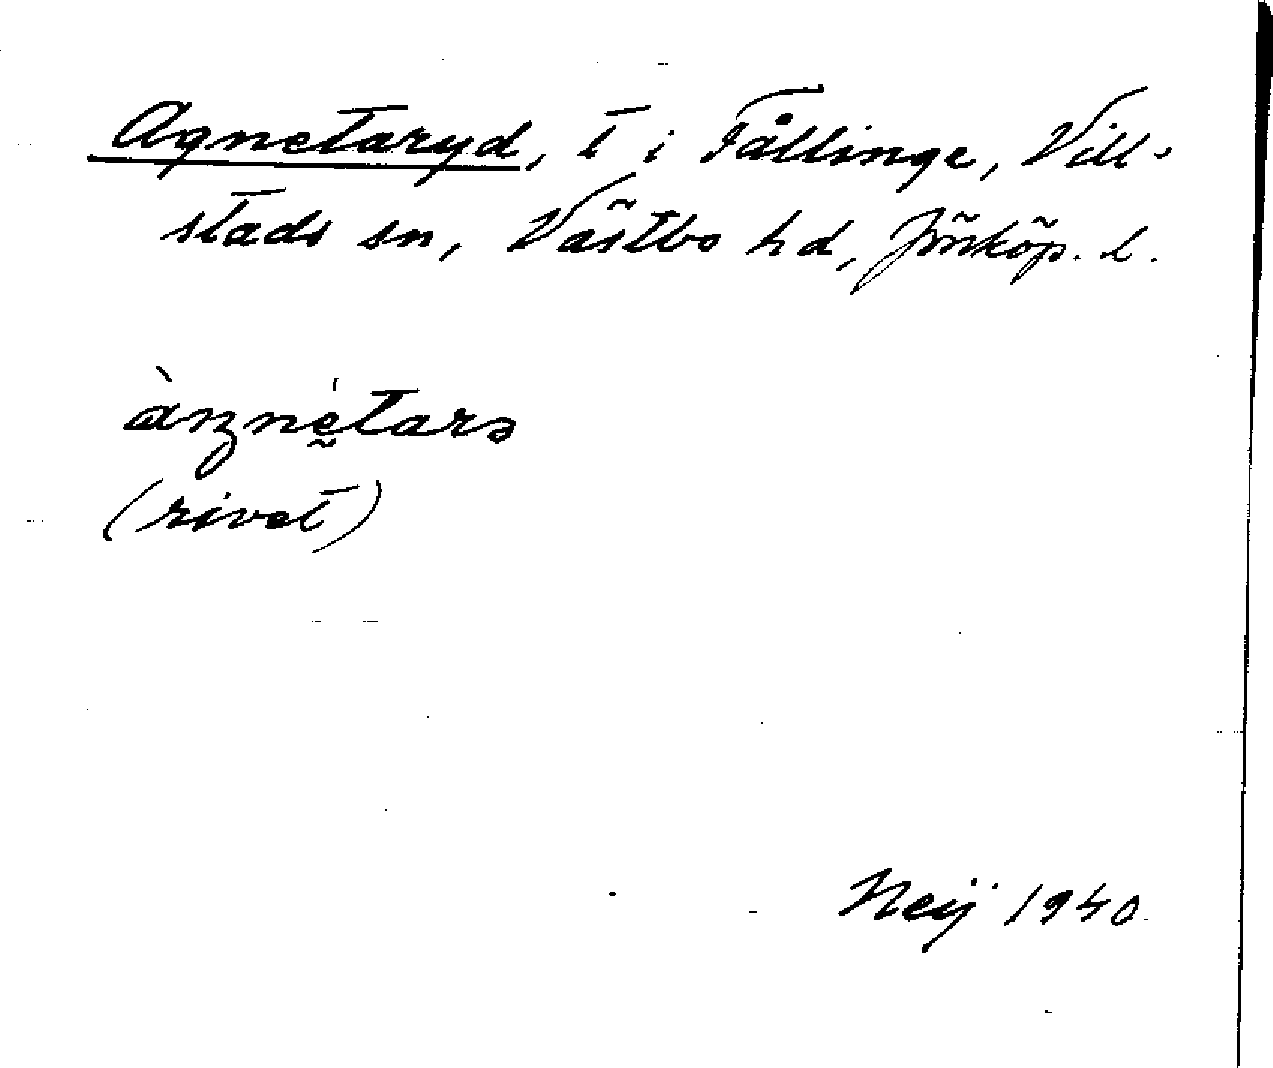 Agnetaryd, t i Fållinge, Vill-
stads sn, Västbo hd, Jönköp. l.
àŋnétarə
(rivet)
Neij 1940